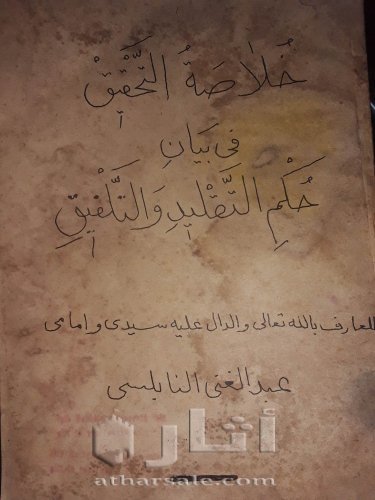 خُلَاصَةُ التَّحْقِيْقِ
فِي بَيَانِ
حُكْمِ التَّقْلِيْدِ وَالتَّلْفِيْقِ
للعارف بالله تعالى والدال عليه سيدى وإمامى
عبد الغنى النابلسى
أثار
atharsale.com